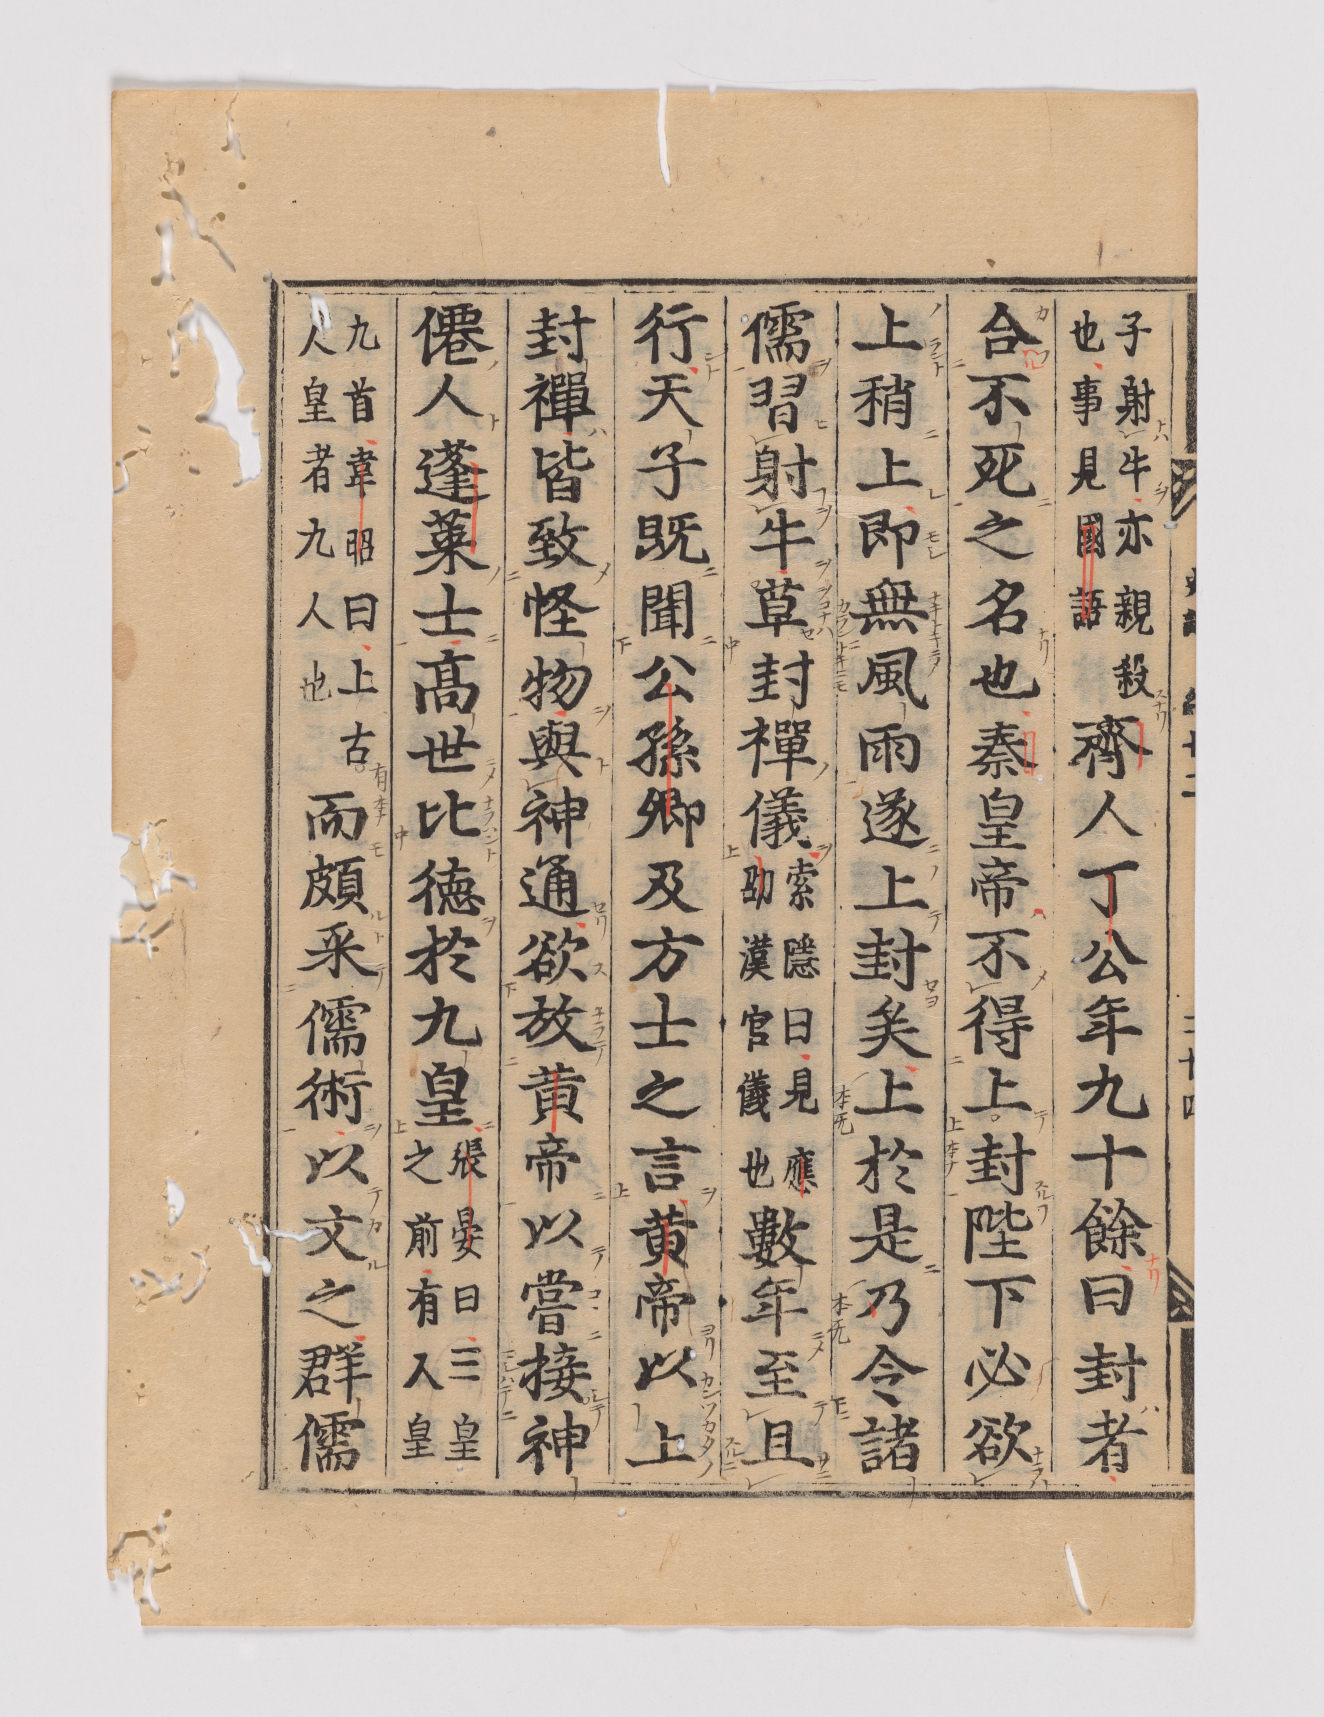 子射牛亦親殺
也事見國語
齊人丁公年九十餘曰封者
合不死之名也秦皇帝不得上封陛下必欲
上稍上即無風雨遂上封矣上於是乃令諸
儒習射牛草封禪儀
索隱曰見應
劭漢官儀也
數年至且
行天子既聞公孫卿及方士之言黄帝以上
封禪皆致怪物與神通欲放黄帝以嘗接神
僊人蓬萊士高世比德於九皇
張晏曰三皇
之前有人皇
九首韋昭曰上古
人皇者九人也
而頗采儒術以文之群儒